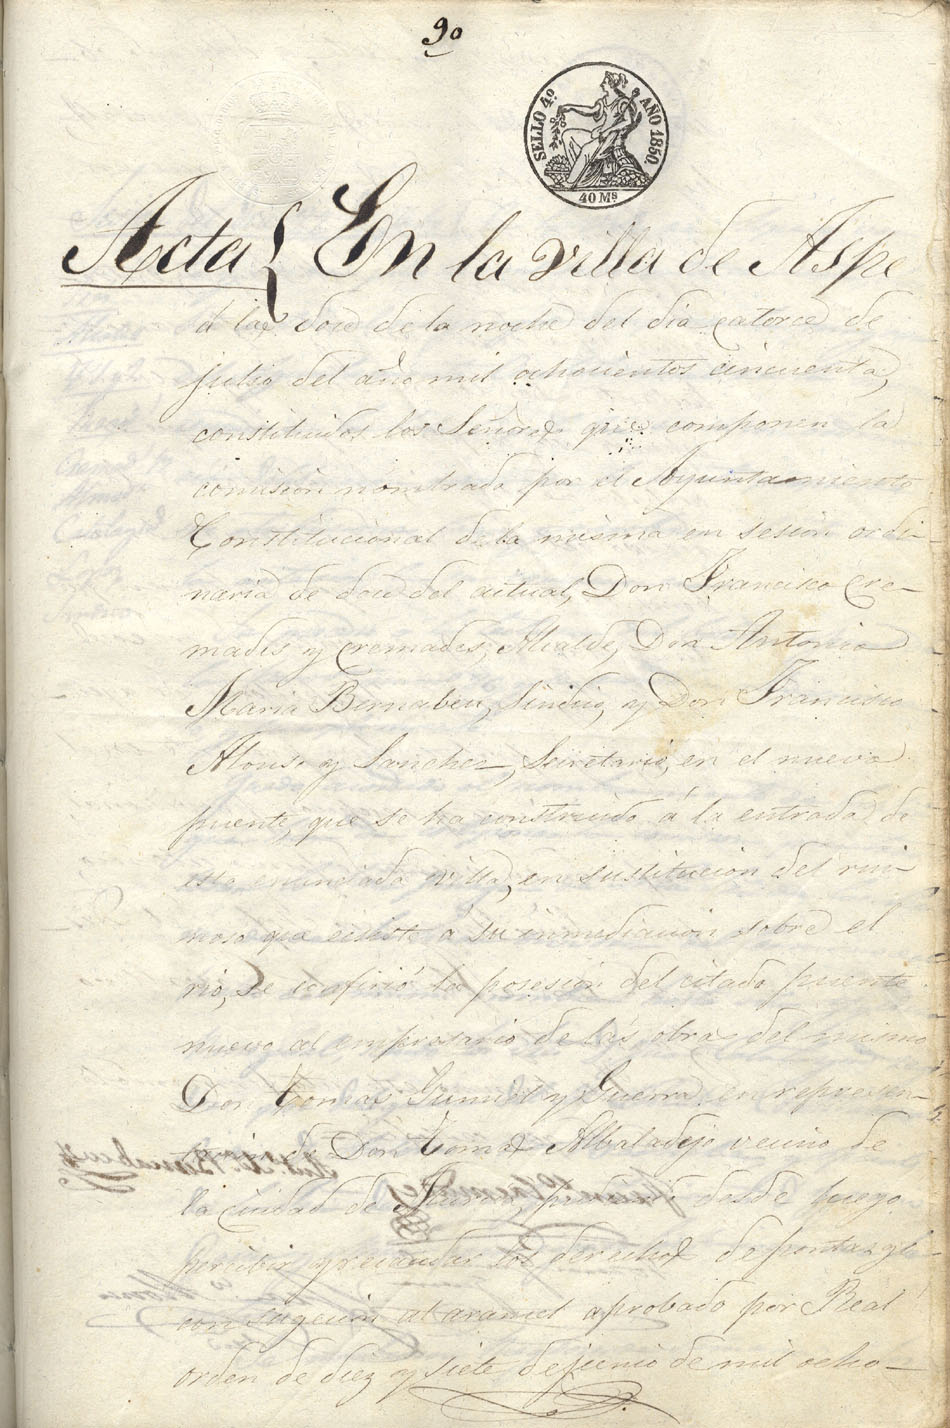 90
SELLO 4º AÑO 1850.
40 Ms
Acta { En la villa de Aspe
á las doce de la noche del dia catorce de
julio del año mil ochocientos cincuenta,
constituidos los Señores que componen la
comision nombrada por el Ayuntamiento
Constitucional de la misma en sesion ordi-
naria de doce del actual, Don Francisco Cre-
mades y Cremades, Alcalde, Don Antonio
Maria Bernabeu, Sindico, y Don Francisco
Alonso y Sanchez, Secretario, en el nuevo
puente, que se ha construido á la entrada de
esta enunciada villa, en sustitucion del rui-
noso que existe á su inmediacion sobre el
rio, se confirió la posesion del citado puente
nuevo al empresario de las obras del mismo
Don Tomas y Guerra, en represen-
Don Tomas Albaladejo vecino de
la Ciudad de desde luego
percibir y recaudar los derechos de pontazgo
con sugecion al arancel aprobado por Real
orden de diez y siete de junio de mil ocho-